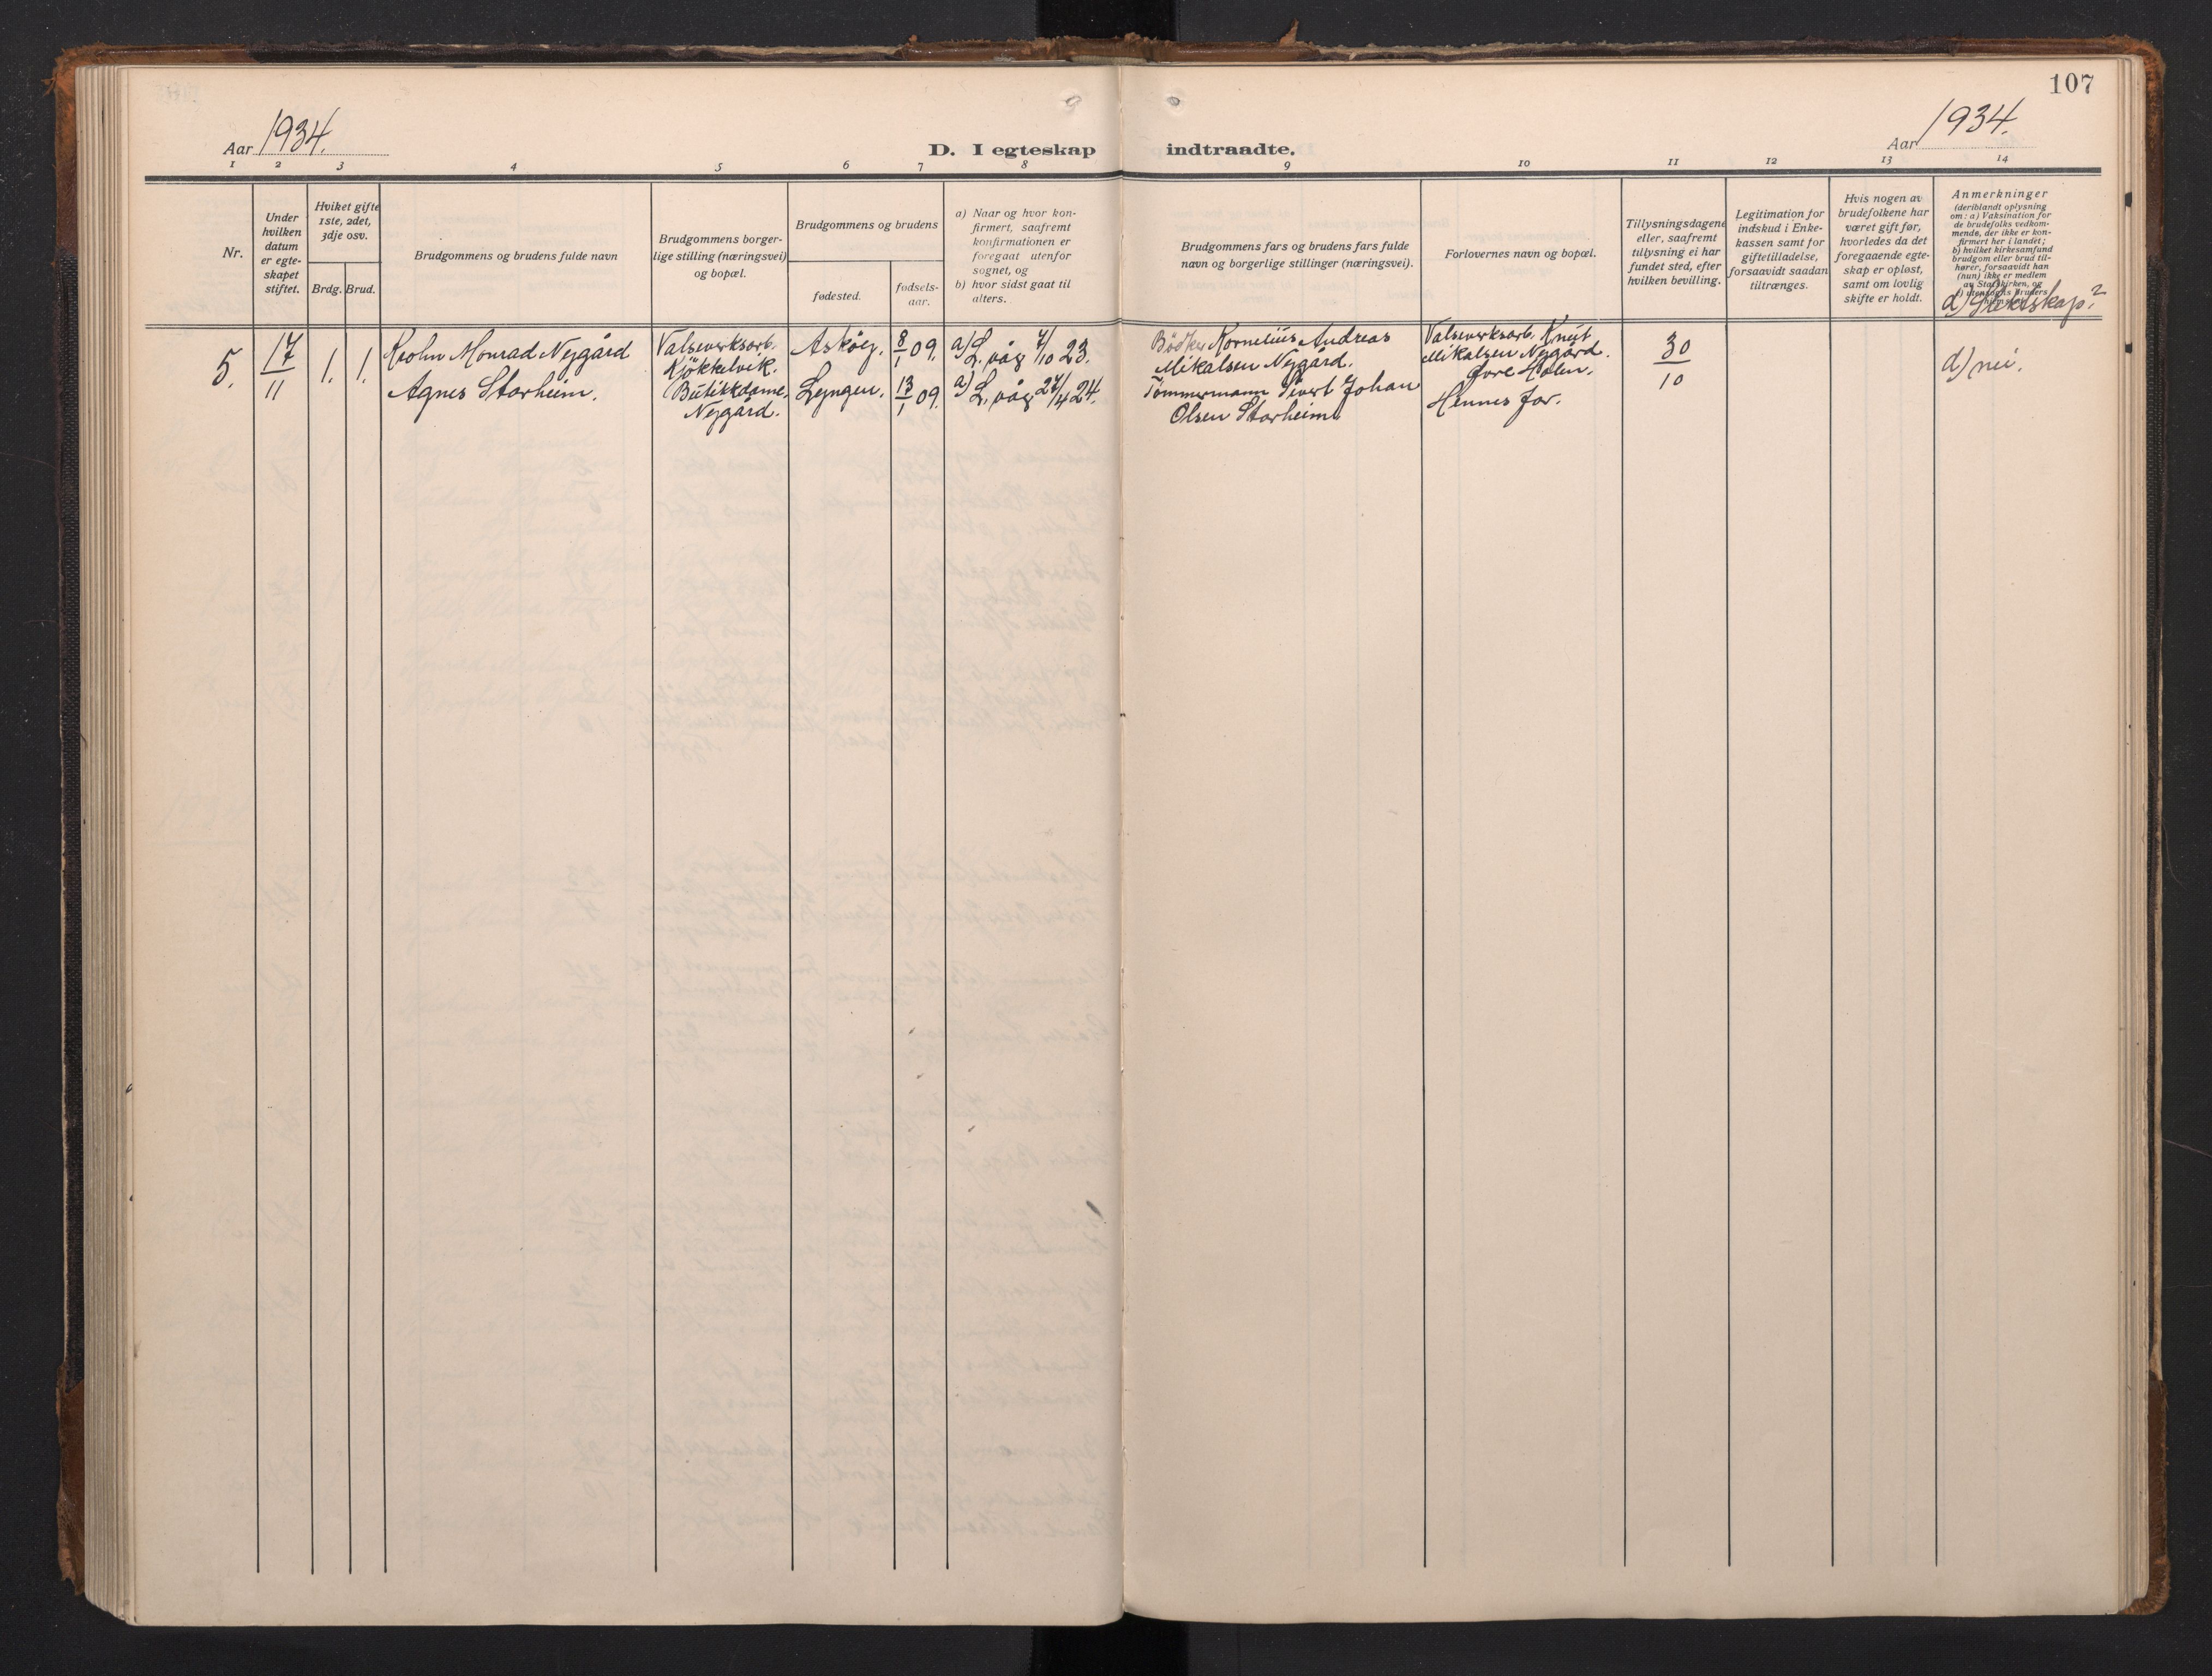 107
Aar 1934.
D. I egteskap indtraadte.
Aar 1934.
1 2 3 4 5 6 7 8 9 10 11 12 13 14
Nr.
Under
hvilken
datum
er egte-
skapet
stiftet.
Hviket gifte
1ste, 2det,
3dje osv.
Brdg. Brud.
Brudgommens og brudens fulde navn
Brudgommens borger-
lige stilling (næringsvei)
og bopæl.
Brudgommens og brudens
fødested.
fødsels-
aar.
a) Naar og hvor kon-
firmert, saafremt
konfirmationen er
foregaat utenfor
sognet, og
b) hvor sidst gaat til
alters.
Brudgommens fars og brudens fars fulde
navn og borgerlige stillinger (næringsvei).
Forlovernes navn og bopæl.
Tillysningsdagene
eller, saafremt
tillysning ei har
fundet sted, efter
hvilken bevilling.
Legitimation for
indskud i Enke-
kassen samt for
giftetilladelse,
forsaavidt saadan
tiltrænges.
Hvis nogen av
brudefolkene har
været gift før,
hvorledes da det
foregaaende egte-
skap er opløst,
samt om lovlig
skifte er holdt.
Anmerkninger
(deriblandt oplysning
om: a) Vaksination for
de brudefolks vedkom-
mende, der ikke er kon-
firmert her i landet;
b) hvilket kirkesamfund
brudgom eller brud til-
hører, forsaavidt han
(hun) ikke er medlem
av Statskirken, og
d) Slektskap?
5.
17
11
1. 1.
Krohn Monrad Nygård
Agnes Storheim.
Valseverksarb.
Kjøkkelvik.
Butikkdame,
Nygård.
Askøy.
Lyngen.
8/1 09.
13/1 09.
a) L.våg 7/10 23.
a) L.våg 27/4 24.
Bødker Kornelius Andreas
Mikalsen Nygård.
Tømmermann Sivert Johan
Olsen Storheim
Valseverksarb. Knut
Mikalsen Nygård.
Øvre Holen.
Hennes far.
30
10
d) nei.